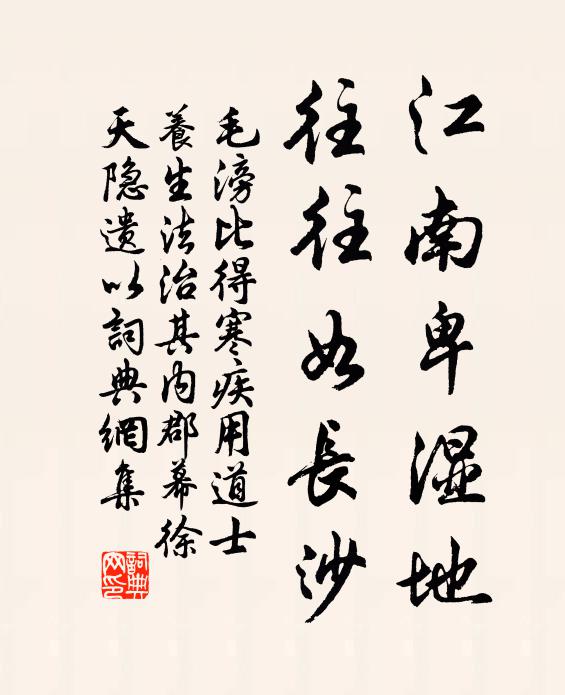 江南卑湿地
往往如長沙
毛滂比得寒疾用道士
養生法治其内郡幕徐
天隐遗以詞典網集
詞典
网印